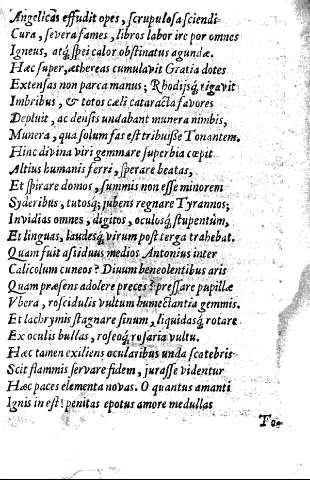 Angelicas effudit opes, scrupulosa sciendi
Cura, severa fames, libros labor ire por omnes
Igneus, atq́; spei calor obstinatus agundæ.
Hæc super, æthereas cumulavit Gratia dotes
Extensas non parca manus; Rhodijsq́; rigavit
Imbribus, & totos cæli cataracta favores
Depluit, ac densis undabant munera nimbis,
Munera, qua solum fas est tribuisse Tonantem.
Hinc divina viri gemmare superbia cœpit
Altius humanis ferri, sperare beatas,
Et spirare domos, summis non esse minorem
Syderibus, tutosq́; jubens regnare Tyrannos;
Invidias omnes, digitos, oculosq́; stupentũm,
Et linguas, laudesq́; virum post terga trahebat.
Quam fuit assiduus medios Antonius inter
Calicolum cuneos? Divum beneolentibus aris
Quam præsens adolere preces? pressare pupillæ
Vbera, roscidulis vultum humectantia gemmis.
Et lachrymis stagnare sinum, liquidasq́; rotare
Ex oculis bullas, roseoq́; rosaria vultu.
Hæc tamen exiliens ocularibus unda scatebris
Scit flammis servare fidem, jurasse videntur
Hæc paces elementa novas. O quantus amanti
Ignis inest! penitas epotus amore medullas
To-